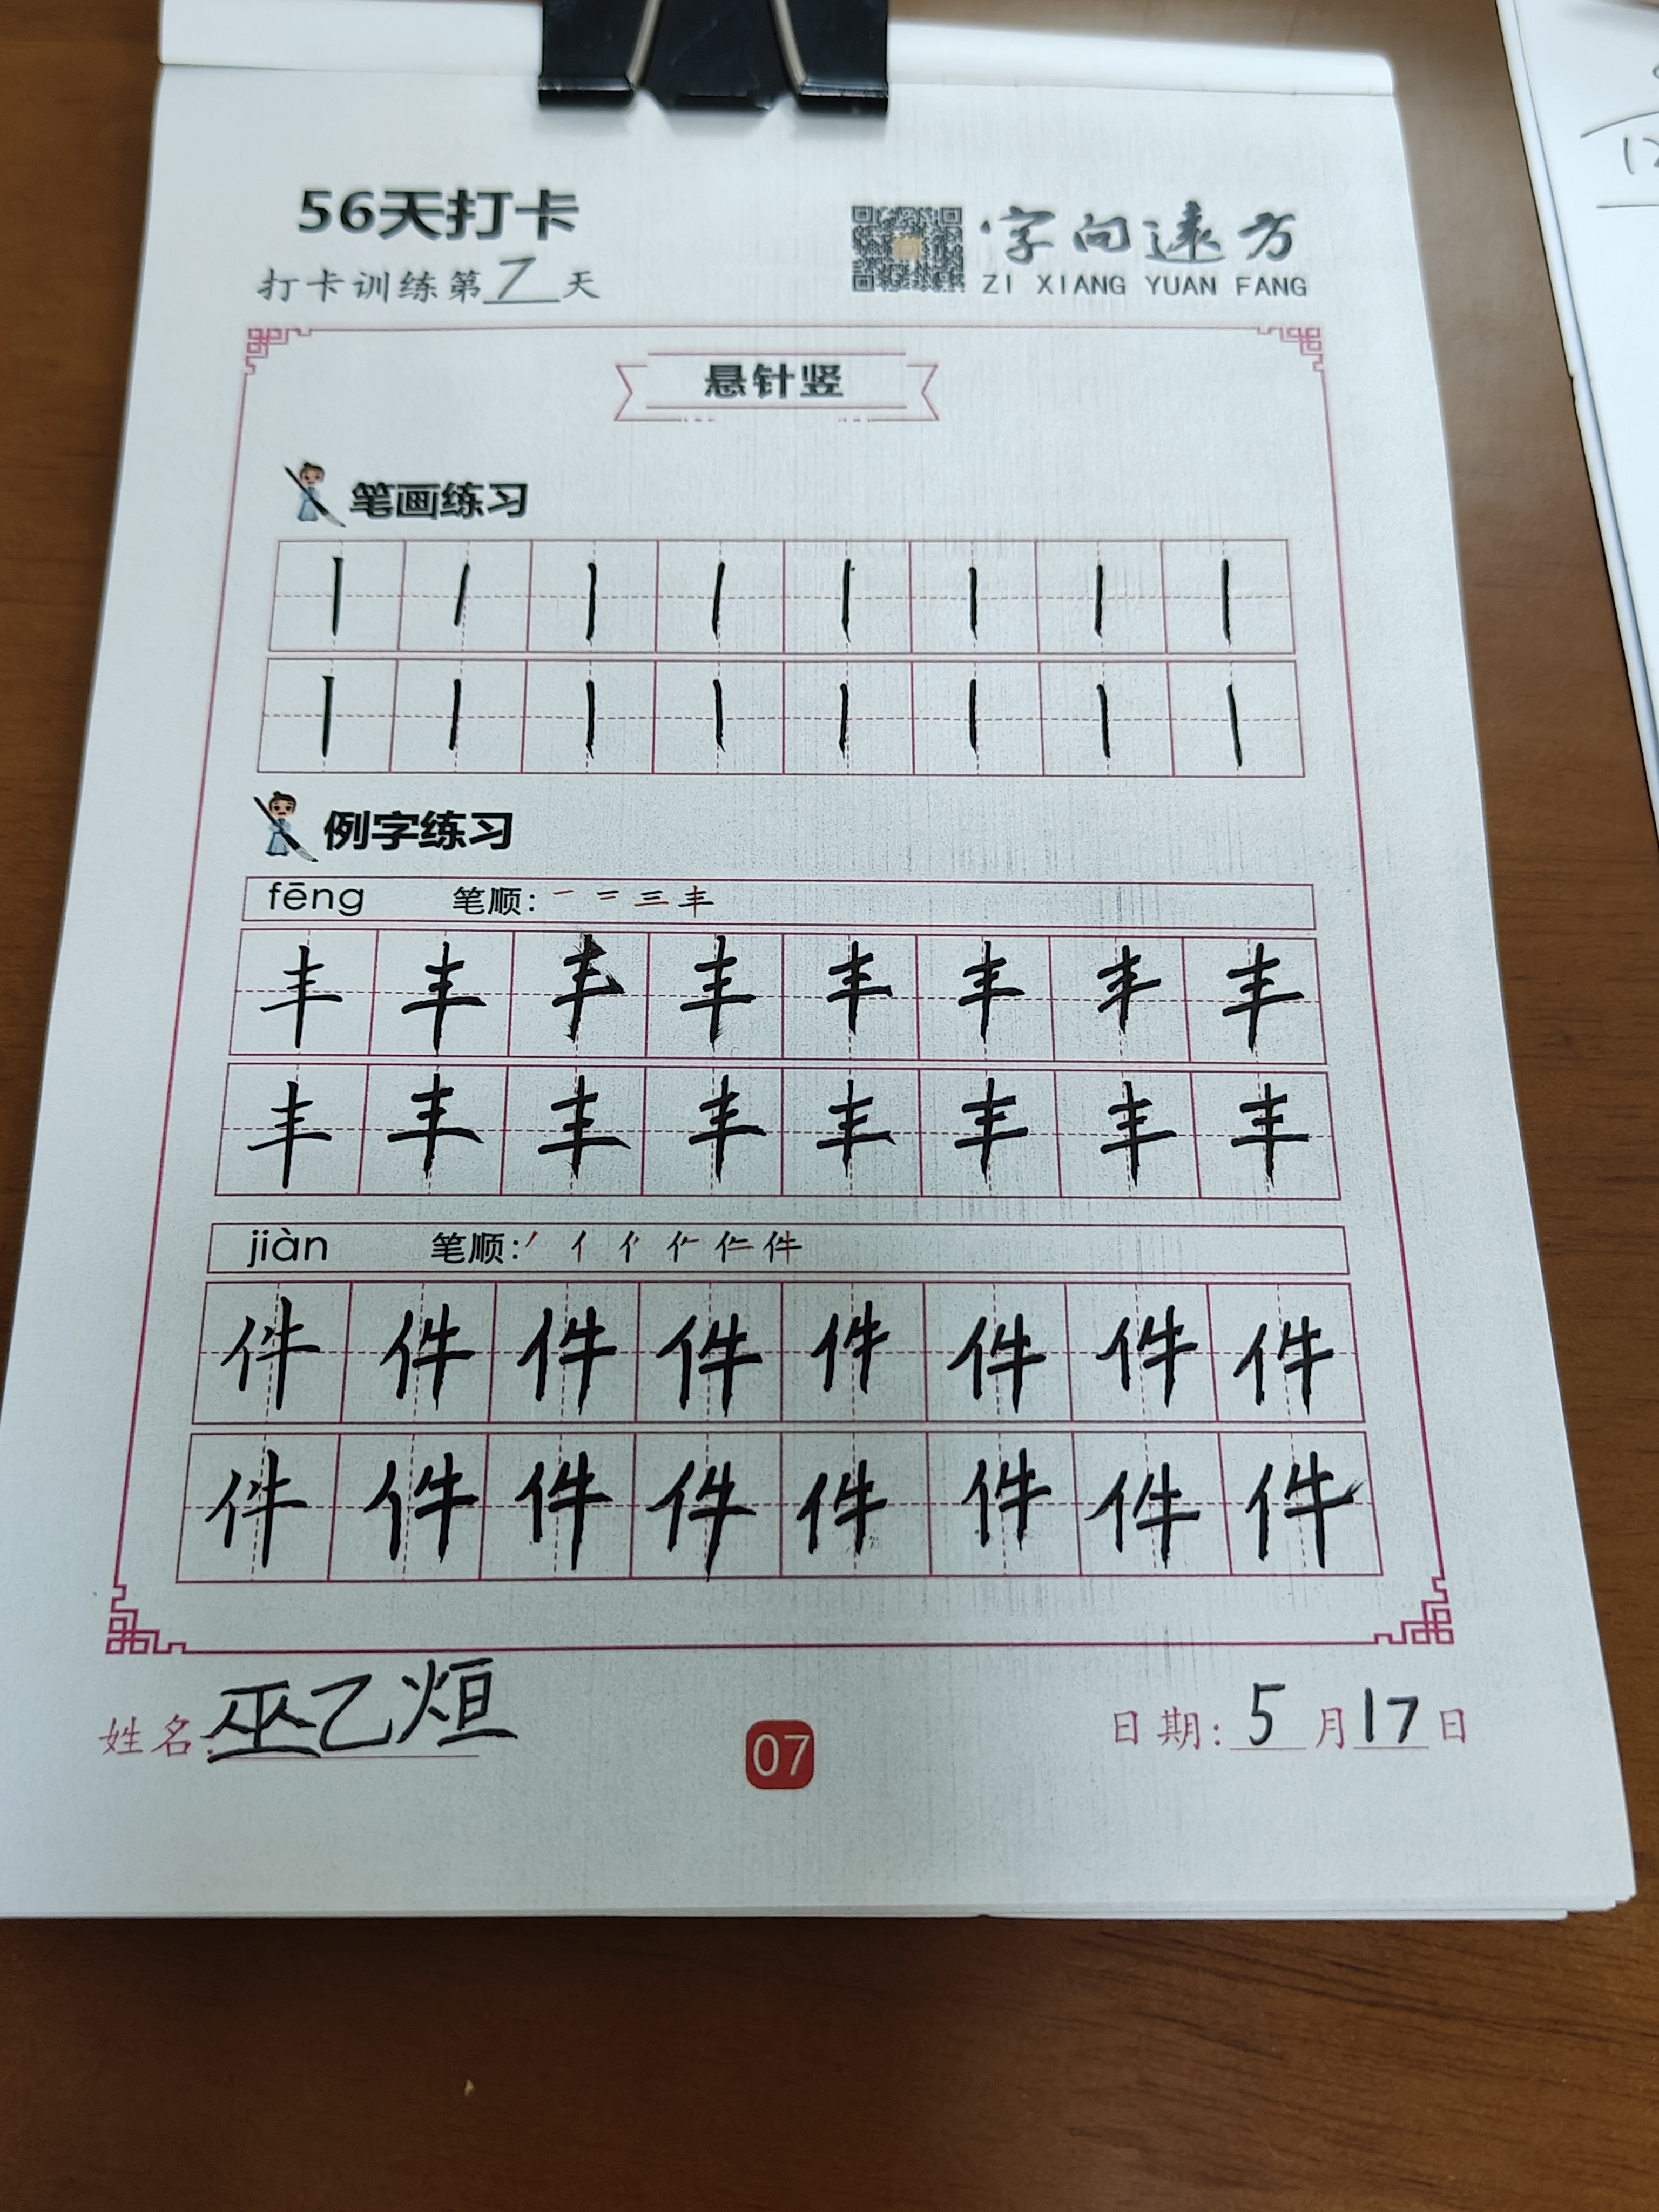 56天打卡
打卡训练第7天
字向远方
ZI XIANG YUAN FANG
悬针竖
笔画练习
丨丨丨丨丨丨丨丨
丨丨丨丨丨丨丨丨
例字练习
fēng 笔顺: 一 二 三 丰
丰丰丰丰丰丰丰丰
丰丰丰丰丰丰丰丰
jiàn 笔顺: 丿 亻 件
件件件件件件件件
件件件件件件件件
姓名:巫乙烜
07
日期:5月17日